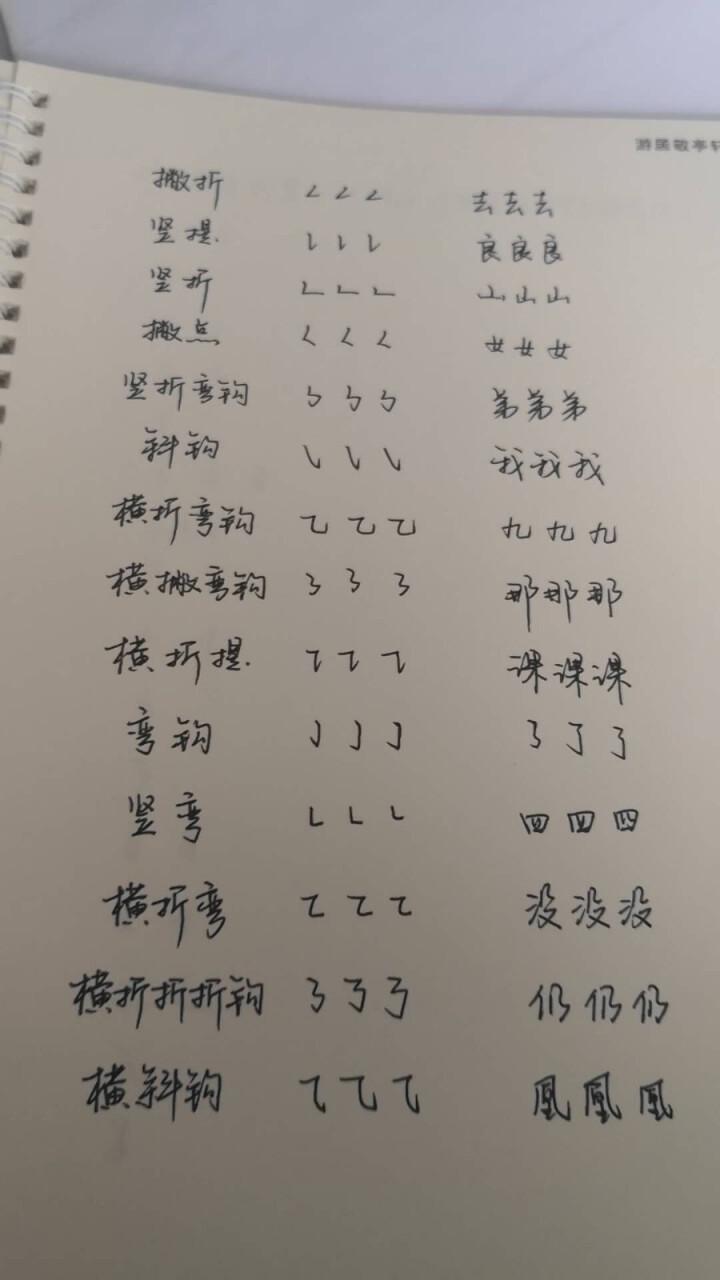 游居敬亭轩
撇折 ㇜ ㇜ ㇜ 去去去
竖提 ㇙ ㇙ ㇙ 良良良
竖折 ㇗ ㇗ ㇗ 山山山
撇点 ㇛ ㇛ ㇛ 女女女
竖折弯钩 ㇉ ㇉ ㇉ 弟弟弟
斜钩 ㇂ ㇂ ㇂ 我我我
横折弯钩 ㇈ ㇈ ㇈ 九九九
横撇弯钩 ㇌ ㇌ ㇌ 那那那
横折提 ㇊ ㇊ ㇊ 课课课
弯钩 ㇁ ㇁ ㇁ 了了了
竖弯 ㇄ ㇄ ㇄ 四四四
横折弯 ㇍ ㇍ ㇍ 没没没
横折折折钩 ㇡ ㇡ ㇡ 仍仍仍
横斜钩 ⺄ ⺄ ⺄ 凰凰凰